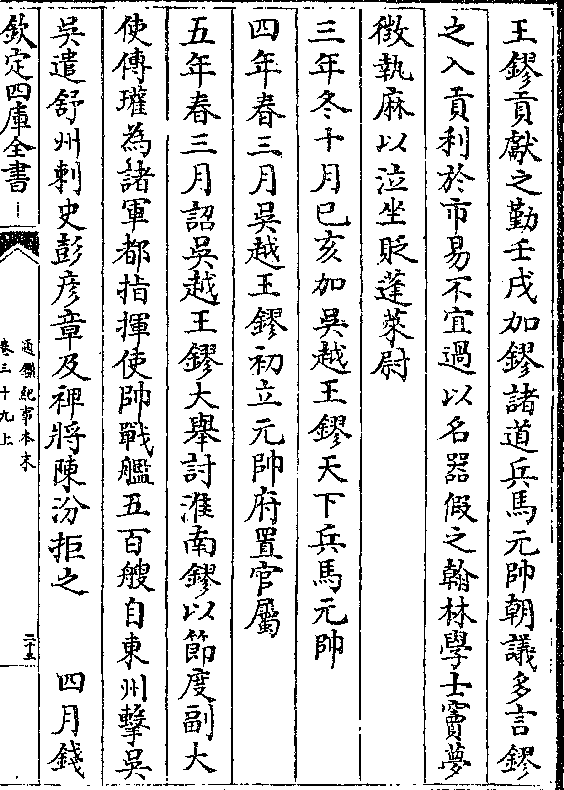 王鏐貢獻之勤壬戌加鏐諸道兵馬元帥朝議多言鏐
之入貢利於市易不宜過以名器假之翰林學士竇夢
徴執麻以泣坐貶蓬萊尉
三年冬十月已亥加吳越王鏐天下兵馬元帥
四年春三月吳越王鏐初立元帥府置官屬
五年春三月詔吳越王鏐大舉討淮南鏐以節度副大
使傳瓘為諸軍都指揮使帥戰艦五百艘自東州擊吳
吳遣舒州刺史彭彦章及裨將陳汾拒之　四月錢
欽定四庫全書
通鑑紀事本末
卷三十九上
二十五